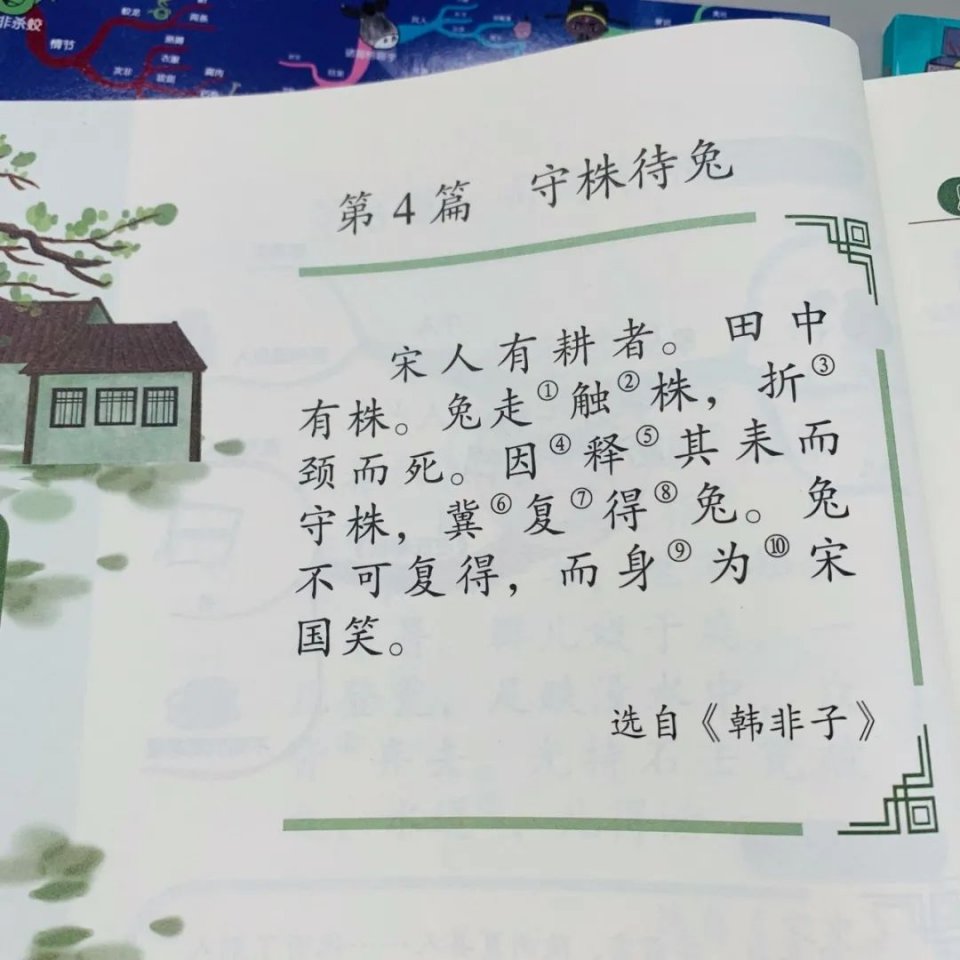 非杀蛟
情节
第4篇 守株待兔
宋人有耕者。田中
有株。兔走①触②株，折③
颈而死。因④释⑤其耒而
守株，冀⑥复⑦得⑧兔。兔
不可复得，而身⑨为⑩宋
国笑。
选自《韩非子》